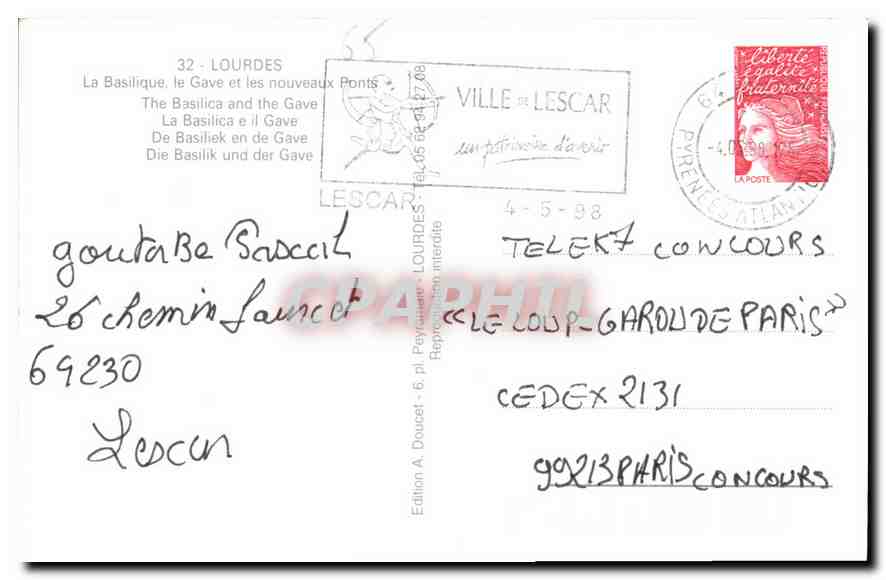 32 - LOURDES
La Basilique, le Gave et les nouveaux Ponts
The Basilica and the Gave
La Basilica e il Gave
De Basiliek en de Gave
Die Basilik und der Gave
VILLE DE LESCAR
un patrimoine d'avenir
LESCAR
4-5-98
PYRENEES ATLANTIQUES
liberté
égalité
fraternité
REPUBLIQUE FRANÇAISE
LA POSTE
goutabe Pascal
26 chemin Launcet
69230
Lescar
Edition A. Doucet - 6, pl. Peyramale - LOURDES - Tél. 05 62 94 27 08
Reproduction interdite
CPAPHIL
TELEK7 CONCOURS
"LE LOUP-GAROU DE PARIS"
CEDEX 2131
99213 PARIS CONCOURS